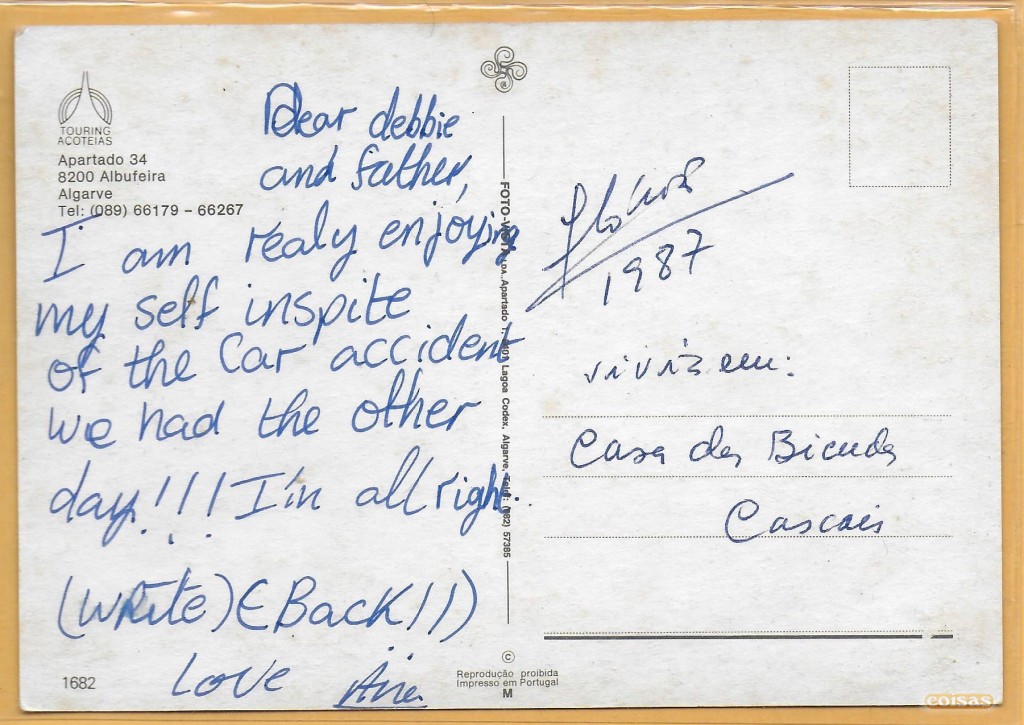 TOURING
ACOTEIAS
Apartado 34
8200 Albufeira
Algarve
Tel: (089) 66179 - 66267
Dear debbie
and father,
I am realy enjoying
my self inspite
of the Car accident
we had the other
day!!! I'm all right.
(write) (Back!!)
Love
1682
FOTO-VISTA, LDA., Apartado Lagoa Codex, Algarve, Telef. (082) 57385
©
Reprodução proibida
Impresso em Portugal
M
1987
Casa da Bicuda
Cascais
coisas